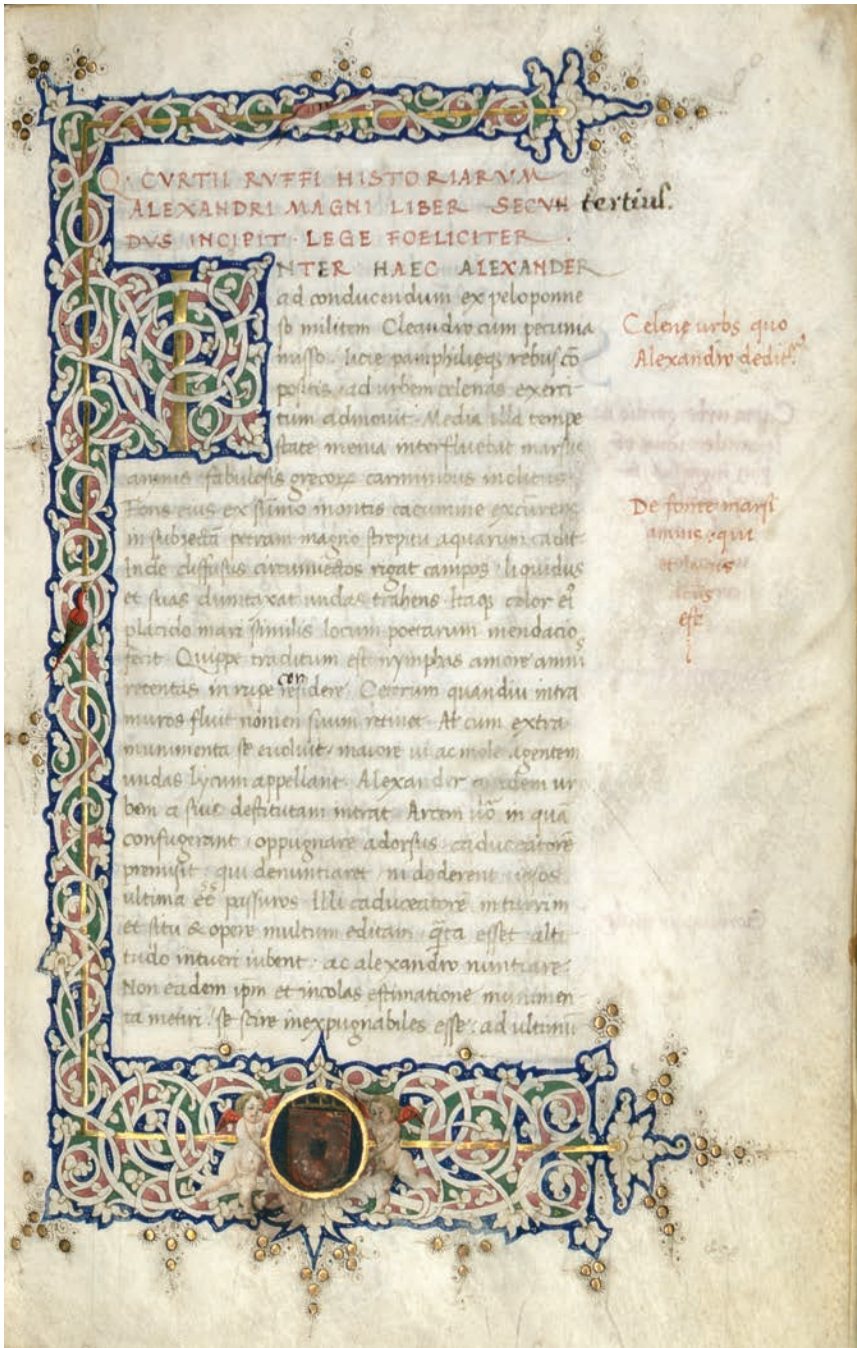 Q. CVRTII RVFFI HISTORIARVM
ALEXANDRI MAGNI LIBER SECVN tertius.
DVS INCIPIT. LEGE FOELICITER.
INTER HAEC ALEXANDER
ad conducendum ex peloponne
so militem Cleandro cum pecunia
misso. licie pamphilieqꝫ rebus cō
positis ad urbem celenas exerci-
tum admouit. Media illa tempe
state menia interfluebat marsias
amnis fabulosis grecoꝝ carminibus inclitus.
Fons eius ex sūmo montis cacumine excurens
in subiectā petram magno strepitu aquarum cadit
Inde diffusus circumiectos rigat campos liquidus
et suas dumtaxat undas trahens Itaqꝫ color eiꝰ
placido mari similis locum poetarum mendacio
fecit. Quippe traditum est nymphas amore amnis
retentas in rupe residere con. Ceterum quandiu intra
muros fluit nomen suum retinet. At cum extra
munimenta se euoluit, maiore ui ac mole agentem
undas lycum appellant. Alexander quidem ur
bem a suis destitutam intrat. Arcem uō in quā
confugerant oppugnare adorsus caduceatorē
premisit qui denuntiaret ni dederent ipsos
ultima eē passuros Illi caduceatorē in turrim
et situ & opere multum editam q̄ta esset alti
tudo intueri iubent. ac alexandro nuntiare.
Non eadem ip̄m et incolas estimatione munimen
ta metiri. se scire inexpugnabiles esse. ad ultimū
Celene urbs quo
Alexandro dedit
De fonte marsi
amnis qui
est